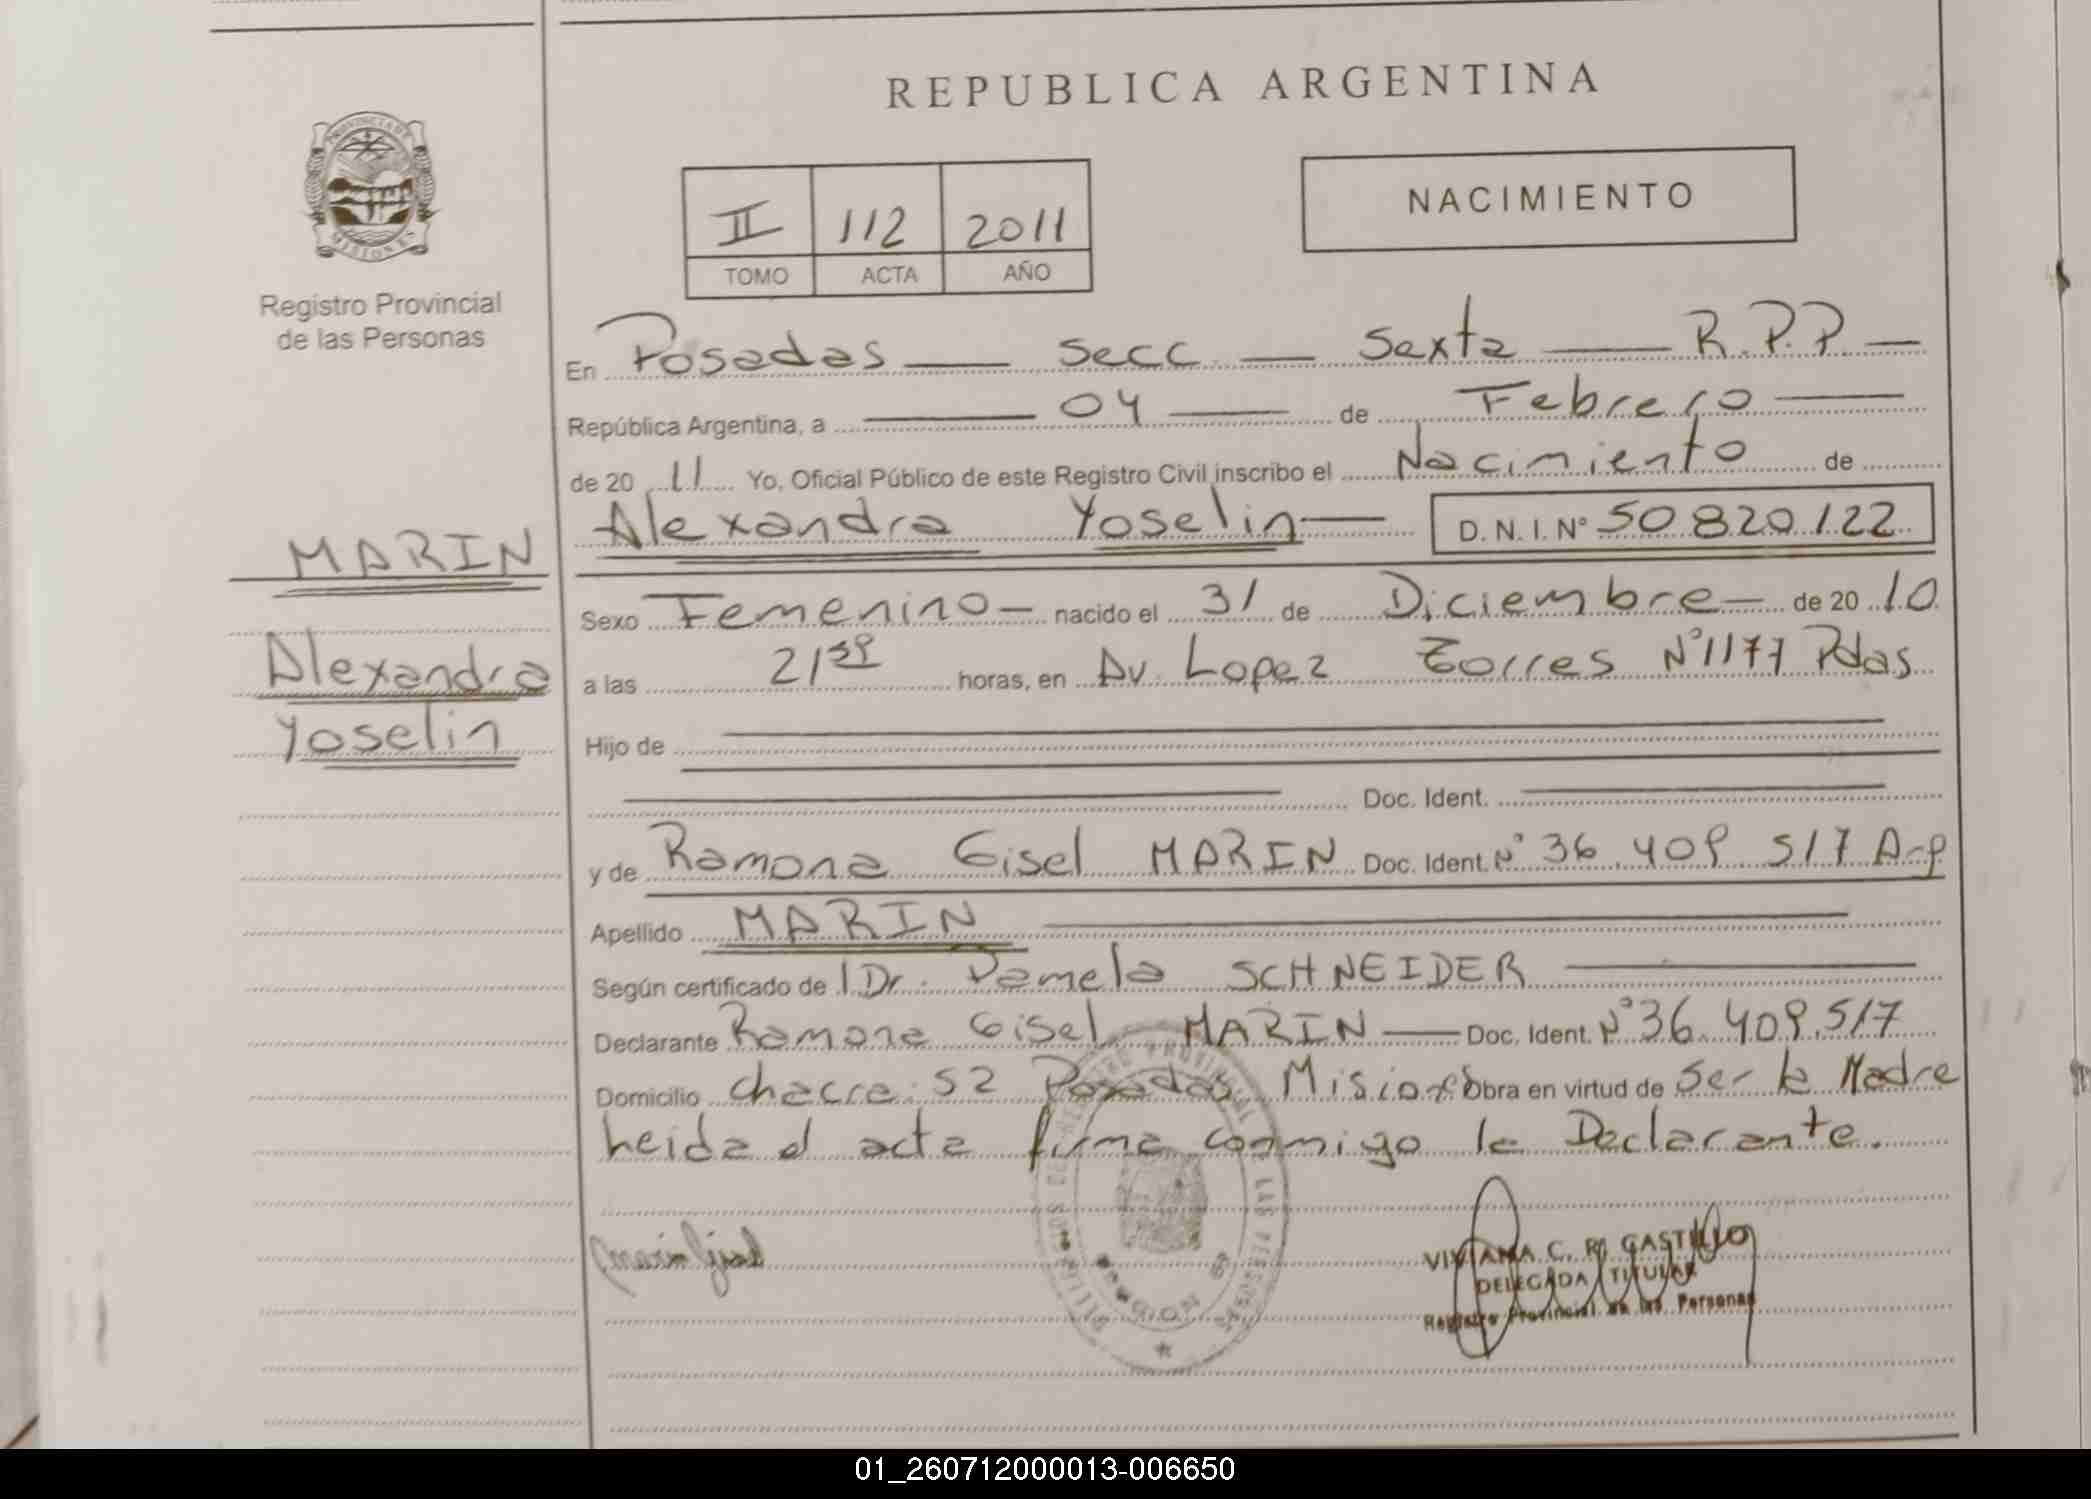 REPUBLICA ARGENTINA
PROVINCIA DE
MISIONES
Registro Provincial
de las Personas
II 112 2011
TOMO ACTA AÑO
NACIMIENTO
En Posadas — Secc — Sexta — R.P.P —
República Argentina, a — 04 — de Febrero —
de 20 11 Yo, Oficial Público de este Registro Civil inscribo el Nacimiento de
Alexandra Yoselin — D.N.I.Nº 50.820.122
MARIN
Alexandra
Yoselin
Sexo Femenino — nacido el 31 de Diciembre — de 20 10
a las 21 59 horas, en Av. Lopez Torres Nº 1177 Pdas
Hijo de
Doc. Ident.
y de Ramona Gisel MARIN Doc. Ident. Nº 36.409.517 Arg
Apellido MARIN
Según certificado de 1 Dr. Pamela SCHNEIDER —
Declarante Ramona Gisel MARIN — Doc. Ident. Nº 36.409.517
Domicilio Chacra 52 Posadas Misiones Obra en virtud de Ser la Madre
heida el acta firma conmigo la Declarante.
Marin Gisel
VIVIANA C. R. CASTILLO
DELEGADA TITULAR
Registro Provincial de las Personas
01_260712000013-006650